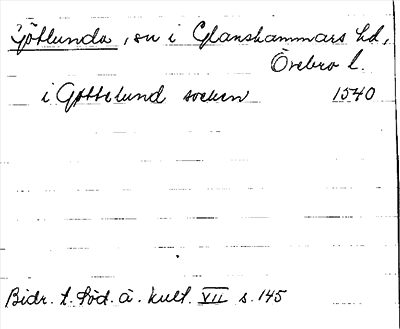 Götlunda, sn i Glanshammars hd,
Örebro l.
i Gøttelund socken 1540
Bidr. t. Söd. å. kult. VII s. 145